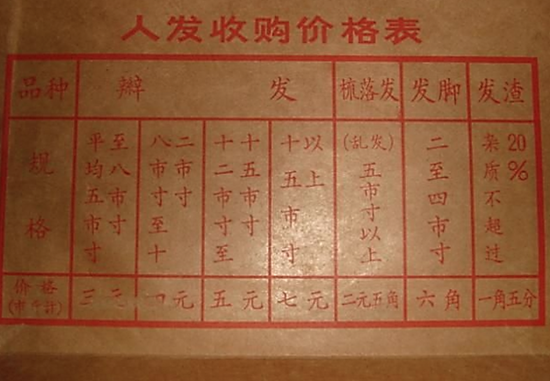 人发收购价格表
品种 辫发 梳落发 发脚 发渣
规格
平均五市寸
至八市寸
八市寸至十
二市寸
十二市寸至
十五市寸
十五市寸
以上
(乱发)
五市寸以上
二至四市寸
杂质不超过
20%
价格
(市斤计)
三元 四元 五元 七元 二元五角 六角 一角五分